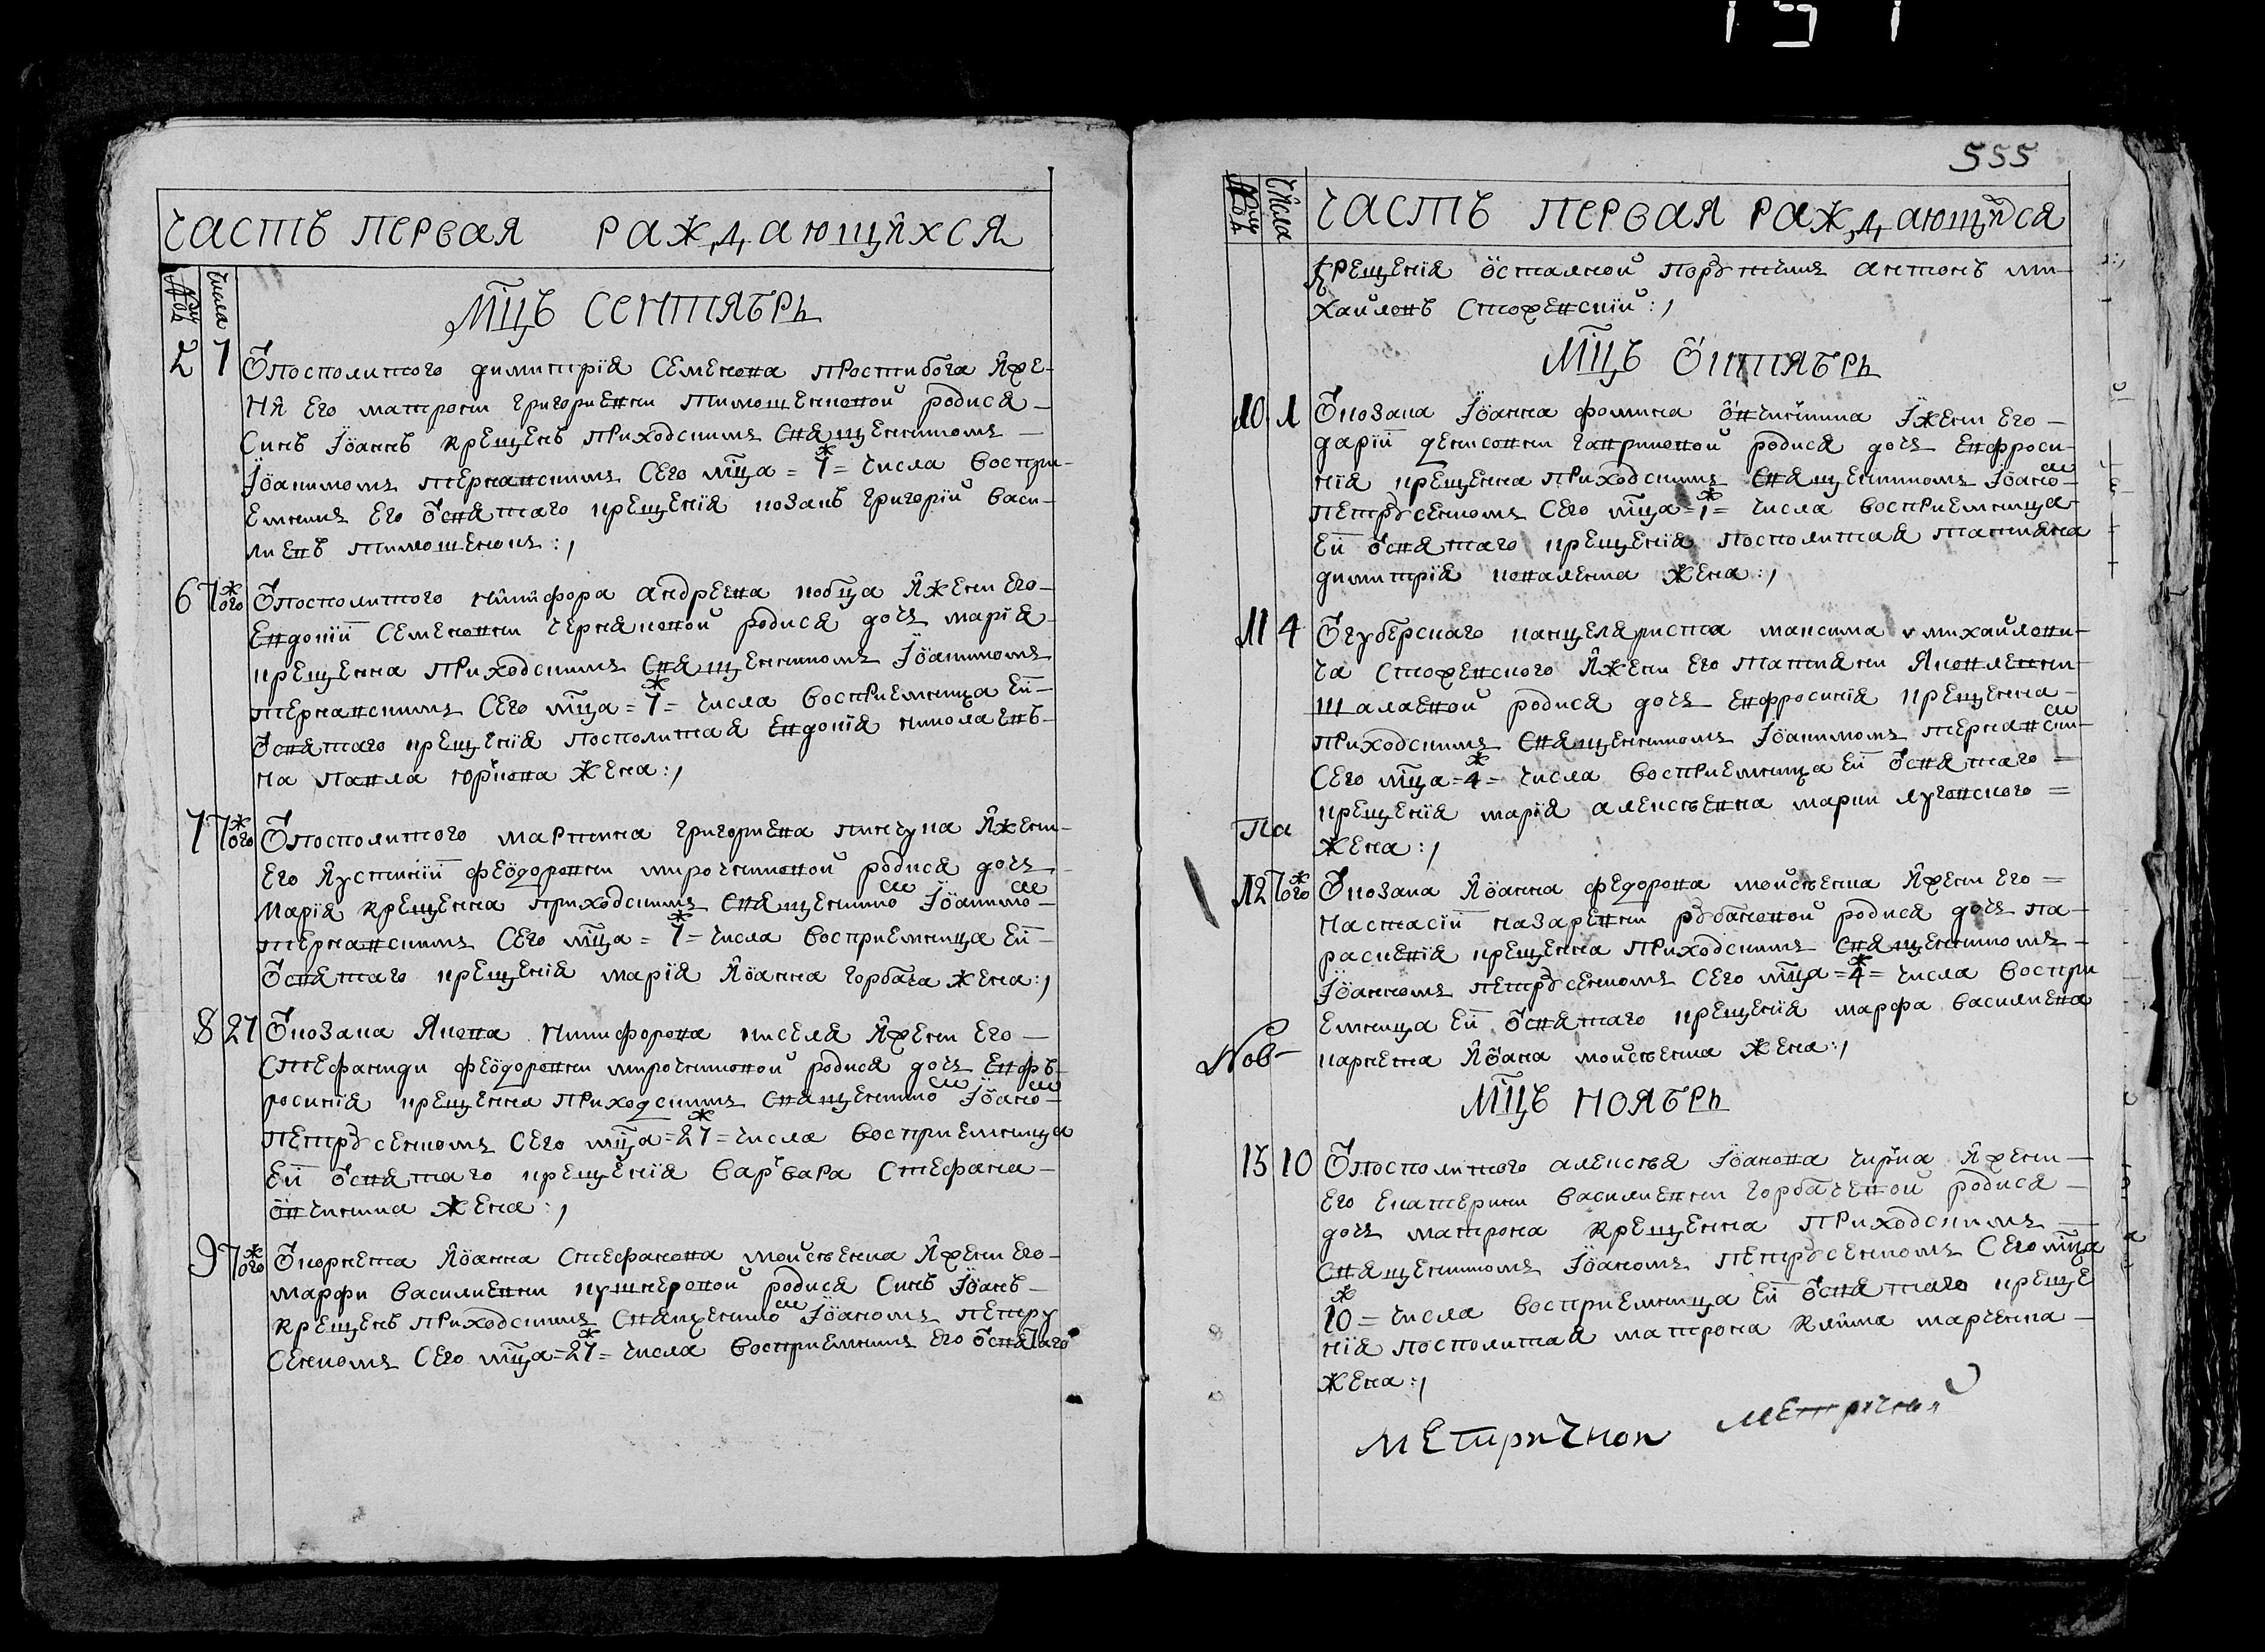 ЧАСТЬ ПЕРВАЯ РАЖДАЮЩИХСЯ
числа
МЦЪ СЕНТЯБРЬ
7 Ѿпосполитого димитрїя Семенова простибога Иже-
ни его матрони григориевни тимошенковой родися
Синъ Іоаннъ крещенъ приходскимъ священникомъ
Іоанникомъ тернавскимъ сего мца = 7 = числа воспри-
емникъ его ѿ святаго крещенїя козакъ григорїй васи-
лиевъ тимошенокъ :,
6 7ого Ѿпосполитого никифора андреева кобца И жени его
Евдокїи Семеновни черняковой родися дочъ марїя
крещенна приходскимъ священникомъ Іоанникомъ
тернавскимъ сего мца = 7 = числа восприемница еи
ѿ святаго крещенїя посполитая Евдокїя николаевъ-
на павла юркова жена :,
7 7ого Ѿпосполитого мартина григориева пинчука И жени
его Иустинїи феодоровни мирочниковой родися дочъ
Марїя крещенна приходскимъ священником Іоанником
тернавскимъ сего мца = 7 = числа восприемница еи
ѿ святаго крещенїя марїя Иоанна горбача жена :,
8 27 Ѿкозака Якова Никифорова киселя И жени его
Стефаниди феодоровни мирочниковой родися дочъ Евфъ-
росинїя крещенна приходскимъ священником Іоаном
петрусенкомъ сего мца = 27 = числа восприемница
еи ѿ святаго крещенїя варъвара Стефана
ѡвчинника жена :,
9 7ого Ѿкорнета Иоанна Стефанова мойсеенка И жени его
марфи василиевни кушнеровой родися Синъ Іоанъ
крещенъ приходскимъ священником Іоаномъ петру
сенкомъ сего мца = 27 = числа восприемникъ его ѿ святаго
555
числа
ЧАСТЬ ПЕРВАЯ РАЖДАЮЩИХСЯ
крещенїя ѿставной поручикъ антонъ ми-
хайловъ Стоженский :,
МЦЪ ОКТЯБРЬ
10 1 Ѿкозака Іоанна фомина ѡвчинника И жени его
дарїи денисовни гавриковой родися дочъ Евфроси-
нїя крещенна приходскимъ священникомъ Іоаном
петрусенкомъ сего мца = 1 = числа восприемница
еи ѿ святаго крещенїя посполитая татияна
димитрїя коваленка жена :,
11 4 Ѿгуберскаго канцеляриста максима михайлови-
ча Стоженского И жени его татияни Яковлевни
шалаевой родися дочъ Евфросинїя крещенна
приходскимъ священникомъ Іоанникомъ тернавским
сего мца = 4 = числа восприемница еи ѿ святаго =
крещенїя марїя алексеевна марки луговского =
Па
жена :,
12 7ого Ѿкозака Иоанна федорова мойсеенка И жени его =
настасїи назаревни рубановой родися дочъ па-
раскевїя крещенна приходскимъ священникомъ
Іоанномъ петрусенкомъ сего мца = 4 = числа воспри
емница еи ѿ святаго крещенїя марфа василиева
Нов
карнета Иоана мойсеенка жена :,
МЦЪ НОЯБРЬ
13 10 Ѿпосполитого алексея Іоанова чирка И жени
его екатерини василиевни горбачевой родися
дочъ матрона крещенна приходскимъ
священникомъ Іоаномъ петрусенкомъ сего мца
10 = числа восприемница еи ѿ святаго креще
нїя посполитая матрона клима марченка
жена :,
метричнои